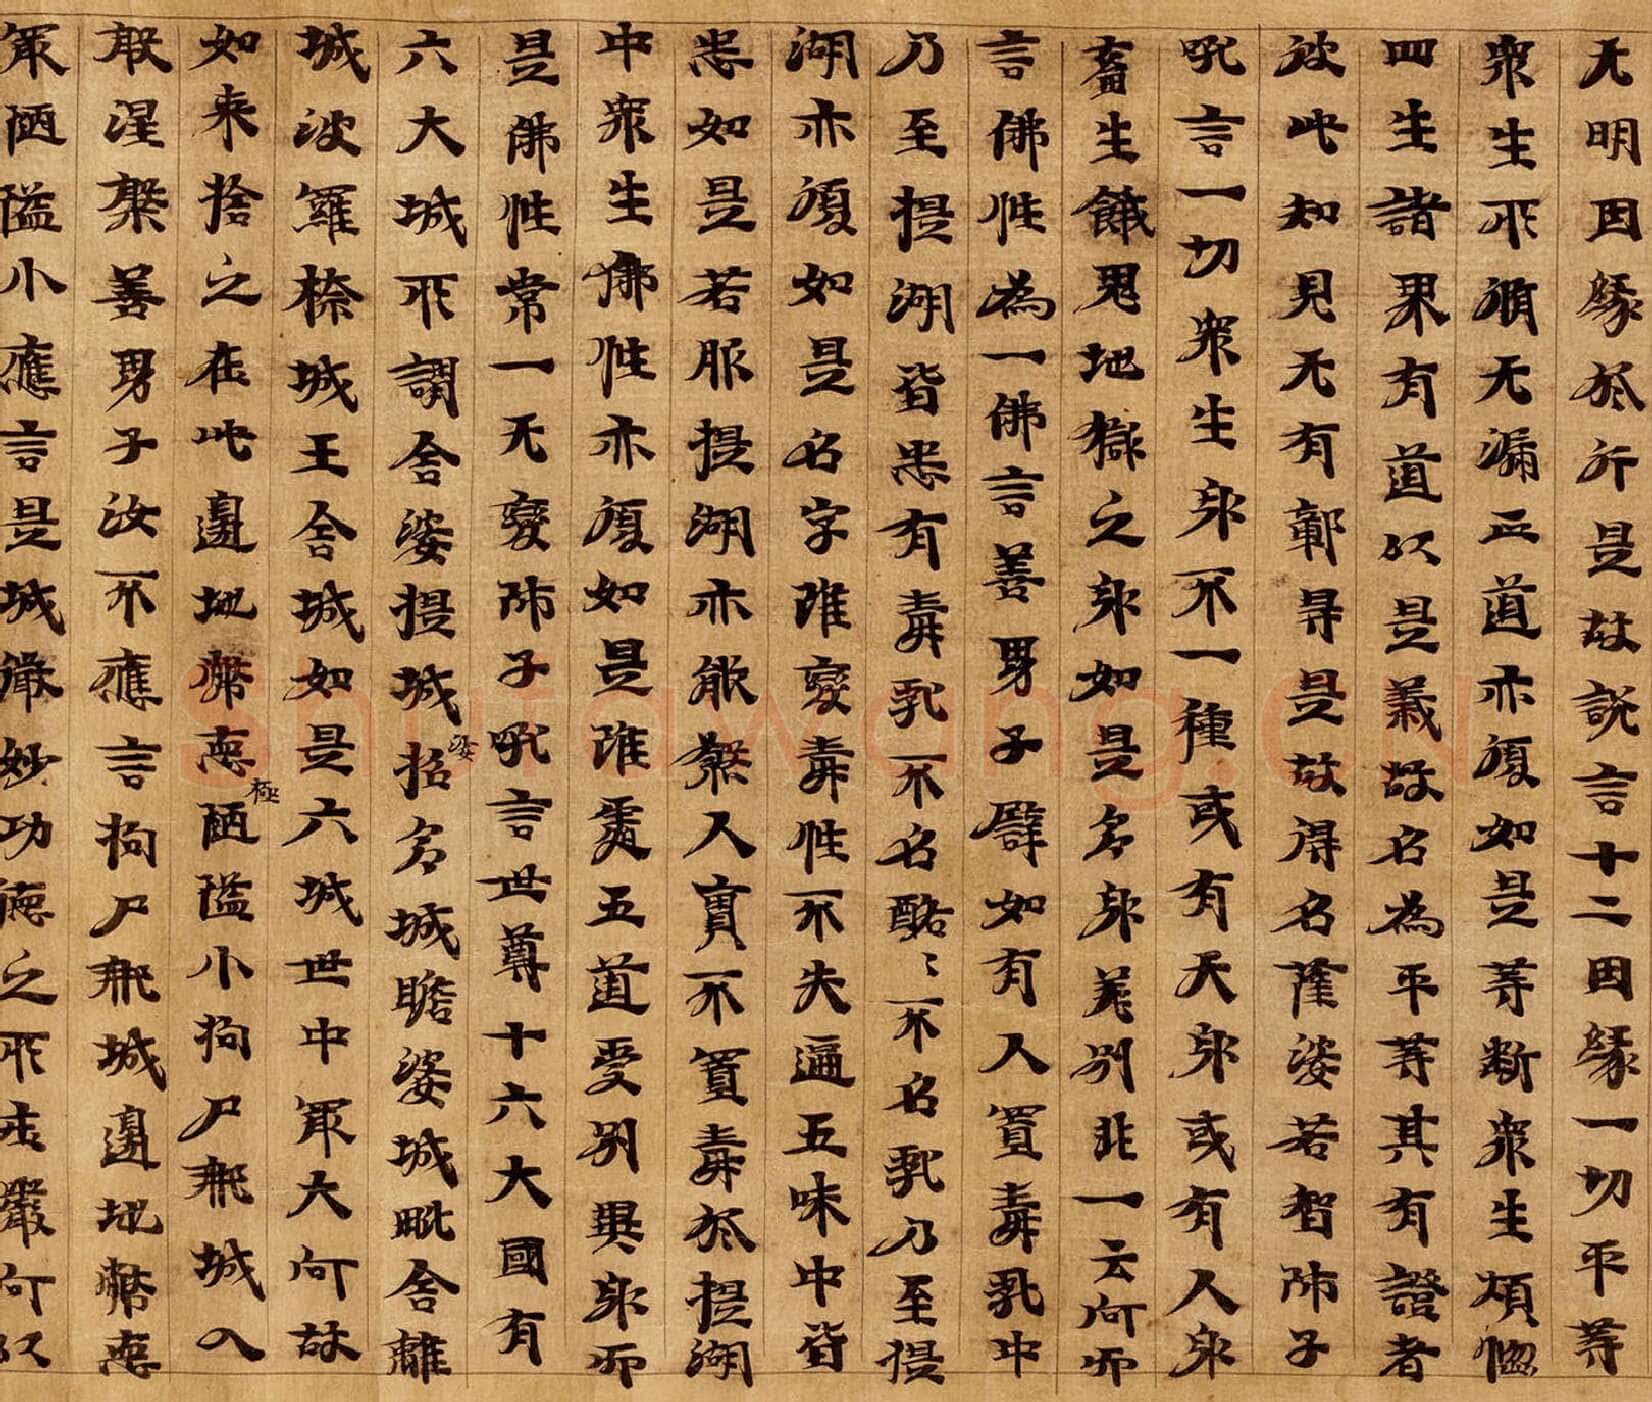 无明因緣於行是故說言十二因緣一切平等
衆生所脩无漏正道亦復如是等斷衆生煩惱
四生諸界有道以是義故名為平等其有證者
彼此知見无有鄣㝵是故得名薩婆若智師子
吼言一切衆生身不一種或有天身或有人身
畜生餓鬼地獄之身如是多身差別非一云何而
言佛性為一佛言善男子譬如有人置毒乳中
乃至提湖皆悉有毒乳不名酪〻不名乳乃至提
湖亦復如是名字雖變毒性不失遍五味中皆
悉如是若服提湖亦能煞人實不置毒於提湖
中衆生佛性亦復如是雖處五道受別異身而
是佛性常一无變師子吼言世尊十六大國有
六大城所謂舍婆提城婆招多城瞻婆城毗舍離
城波羅㮈城王舍城如是六城世中最大何故
如来捨之在此邊地弊惡極陋隘小拘尸那城入
般涅槃善男子汝不應言拘尸那城邊地弊惡
最陋隘小應言是城微妙功德之所庄嚴何以
shufawang.CN